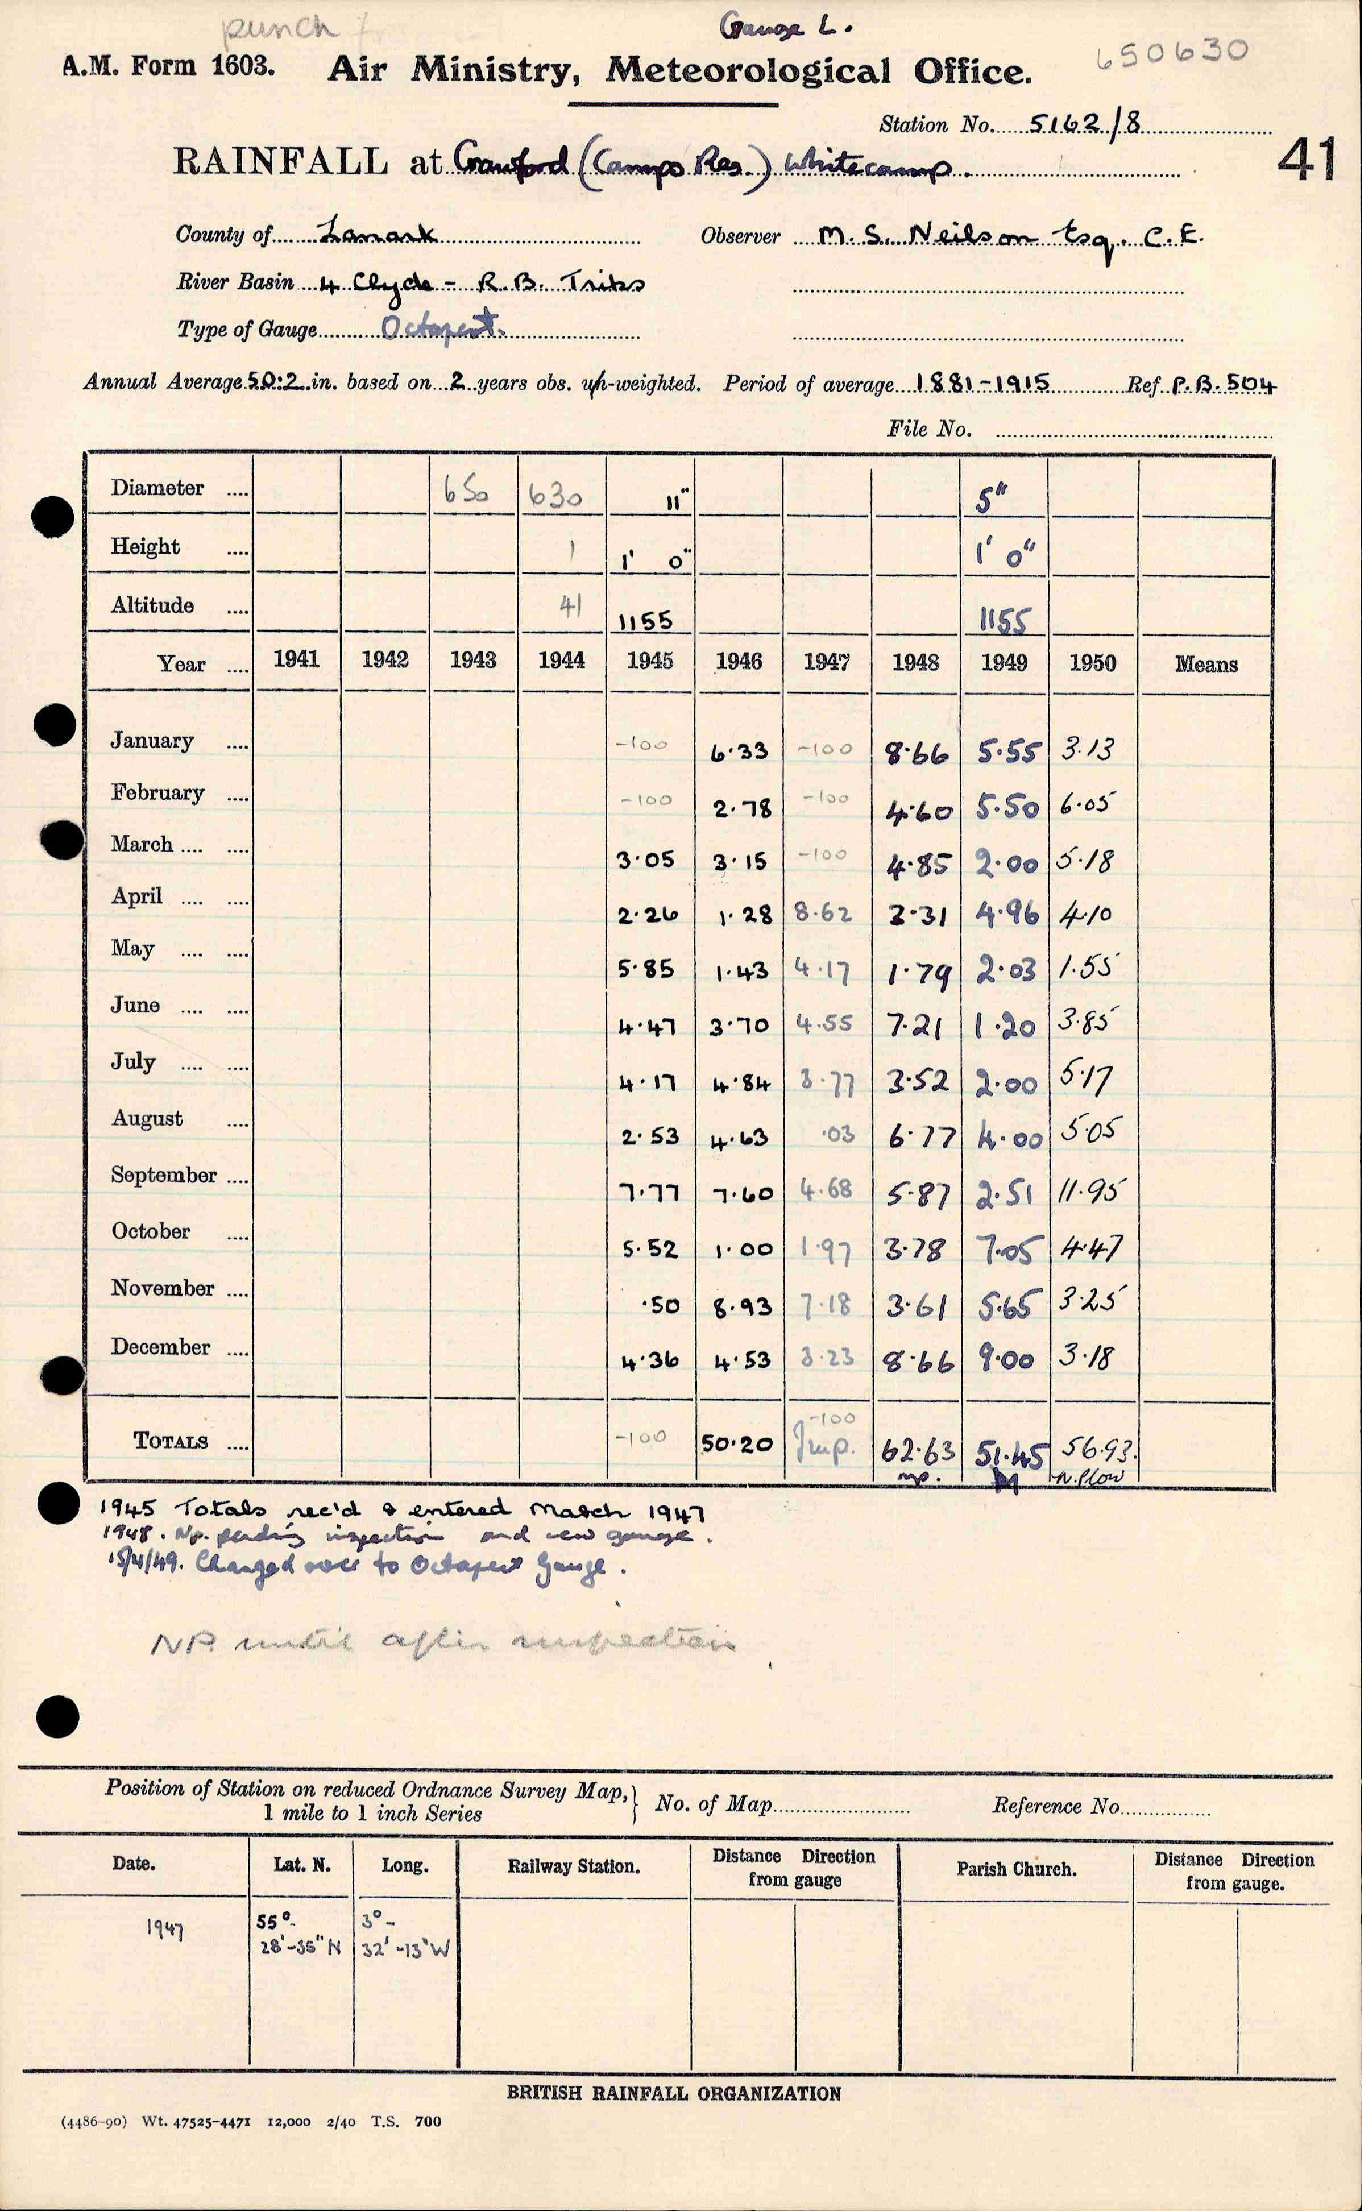 punch
Gauge L.
A.M. Form 1603. Air Ministry, Meteorological Office. 650630
Station No. 5162/8
RAINFALL at Crawford (Camps Res.) Whitecamp. 41
County of Lanark Observer M. S. Neilson Esq. C.E.
River Basin 4 Clyde - R.B. Tribs
Type of Gauge Octapent.
Annual Average 50.2 in. based on 2 years obs. un-weighted. Period of average 1881-1915 Ref P.B. 504
File No.
Diameter .... 650 630 11" 5"
Height .... 1 1' 0" 1' 0"
Altitude .... 41 1155 1155
Year .... 1941 1942 1943 1944 1945 1946 1947 1948 1949 1950 Means
January .... -100 6.33 -100 8.66 5.55 3.13
February .... -100 2.78 -100 4.60 5.50 6.05
March .... .... 3.05 3.15 -100 4.85 2.00 5.18
April .... .... 2.26 1.28 8.62 3.31 4.96 4.10
May .... .... 5.85 1.43 4.17 1.79 2.03 1.55
June .... .... 4.47 3.70 4.55 7.21 1.20 3.85
July .... .... 4.17 4.84 3.77 3.52 2.00 5.17
August .... 2.53 4.63 .03 6.77 4.00 5.05
September .... 7.77 7.60 4.68 5.87 2.51 11.95
October .... 5.52 1.00 1.97 3.78 7.05 4.47
November .... .50 8.93 7.18 3.61 5.65 3.25
December .... 4.36 4.53 3.23 8.66 9.00 3.18
-100
TOTALS .... -100 50.20 Imp. 62.63 51.45 56.93.
np.
1945 Totals rec'd & entered March 1947
1948. Np. pending inspection and new gauge.
15/4/49. Changed over to Octapent Gauge.
NP. until after inspection
Position of Station on reduced Ordnance Survey Map,} No. of Map Reference No.
1 mile to 1 inch Series
Date. Lat. N. Long. Railway Station. Distance Direction from gauge Parish Church. Distance Direction from gauge.
1947 55°- 3°-
28'-35" N 32'-13" W
BRITISH RAINFALL ORGANIZATION
(4486-90) Wt. 47525-4471 12,000 2/40 T.S. 700